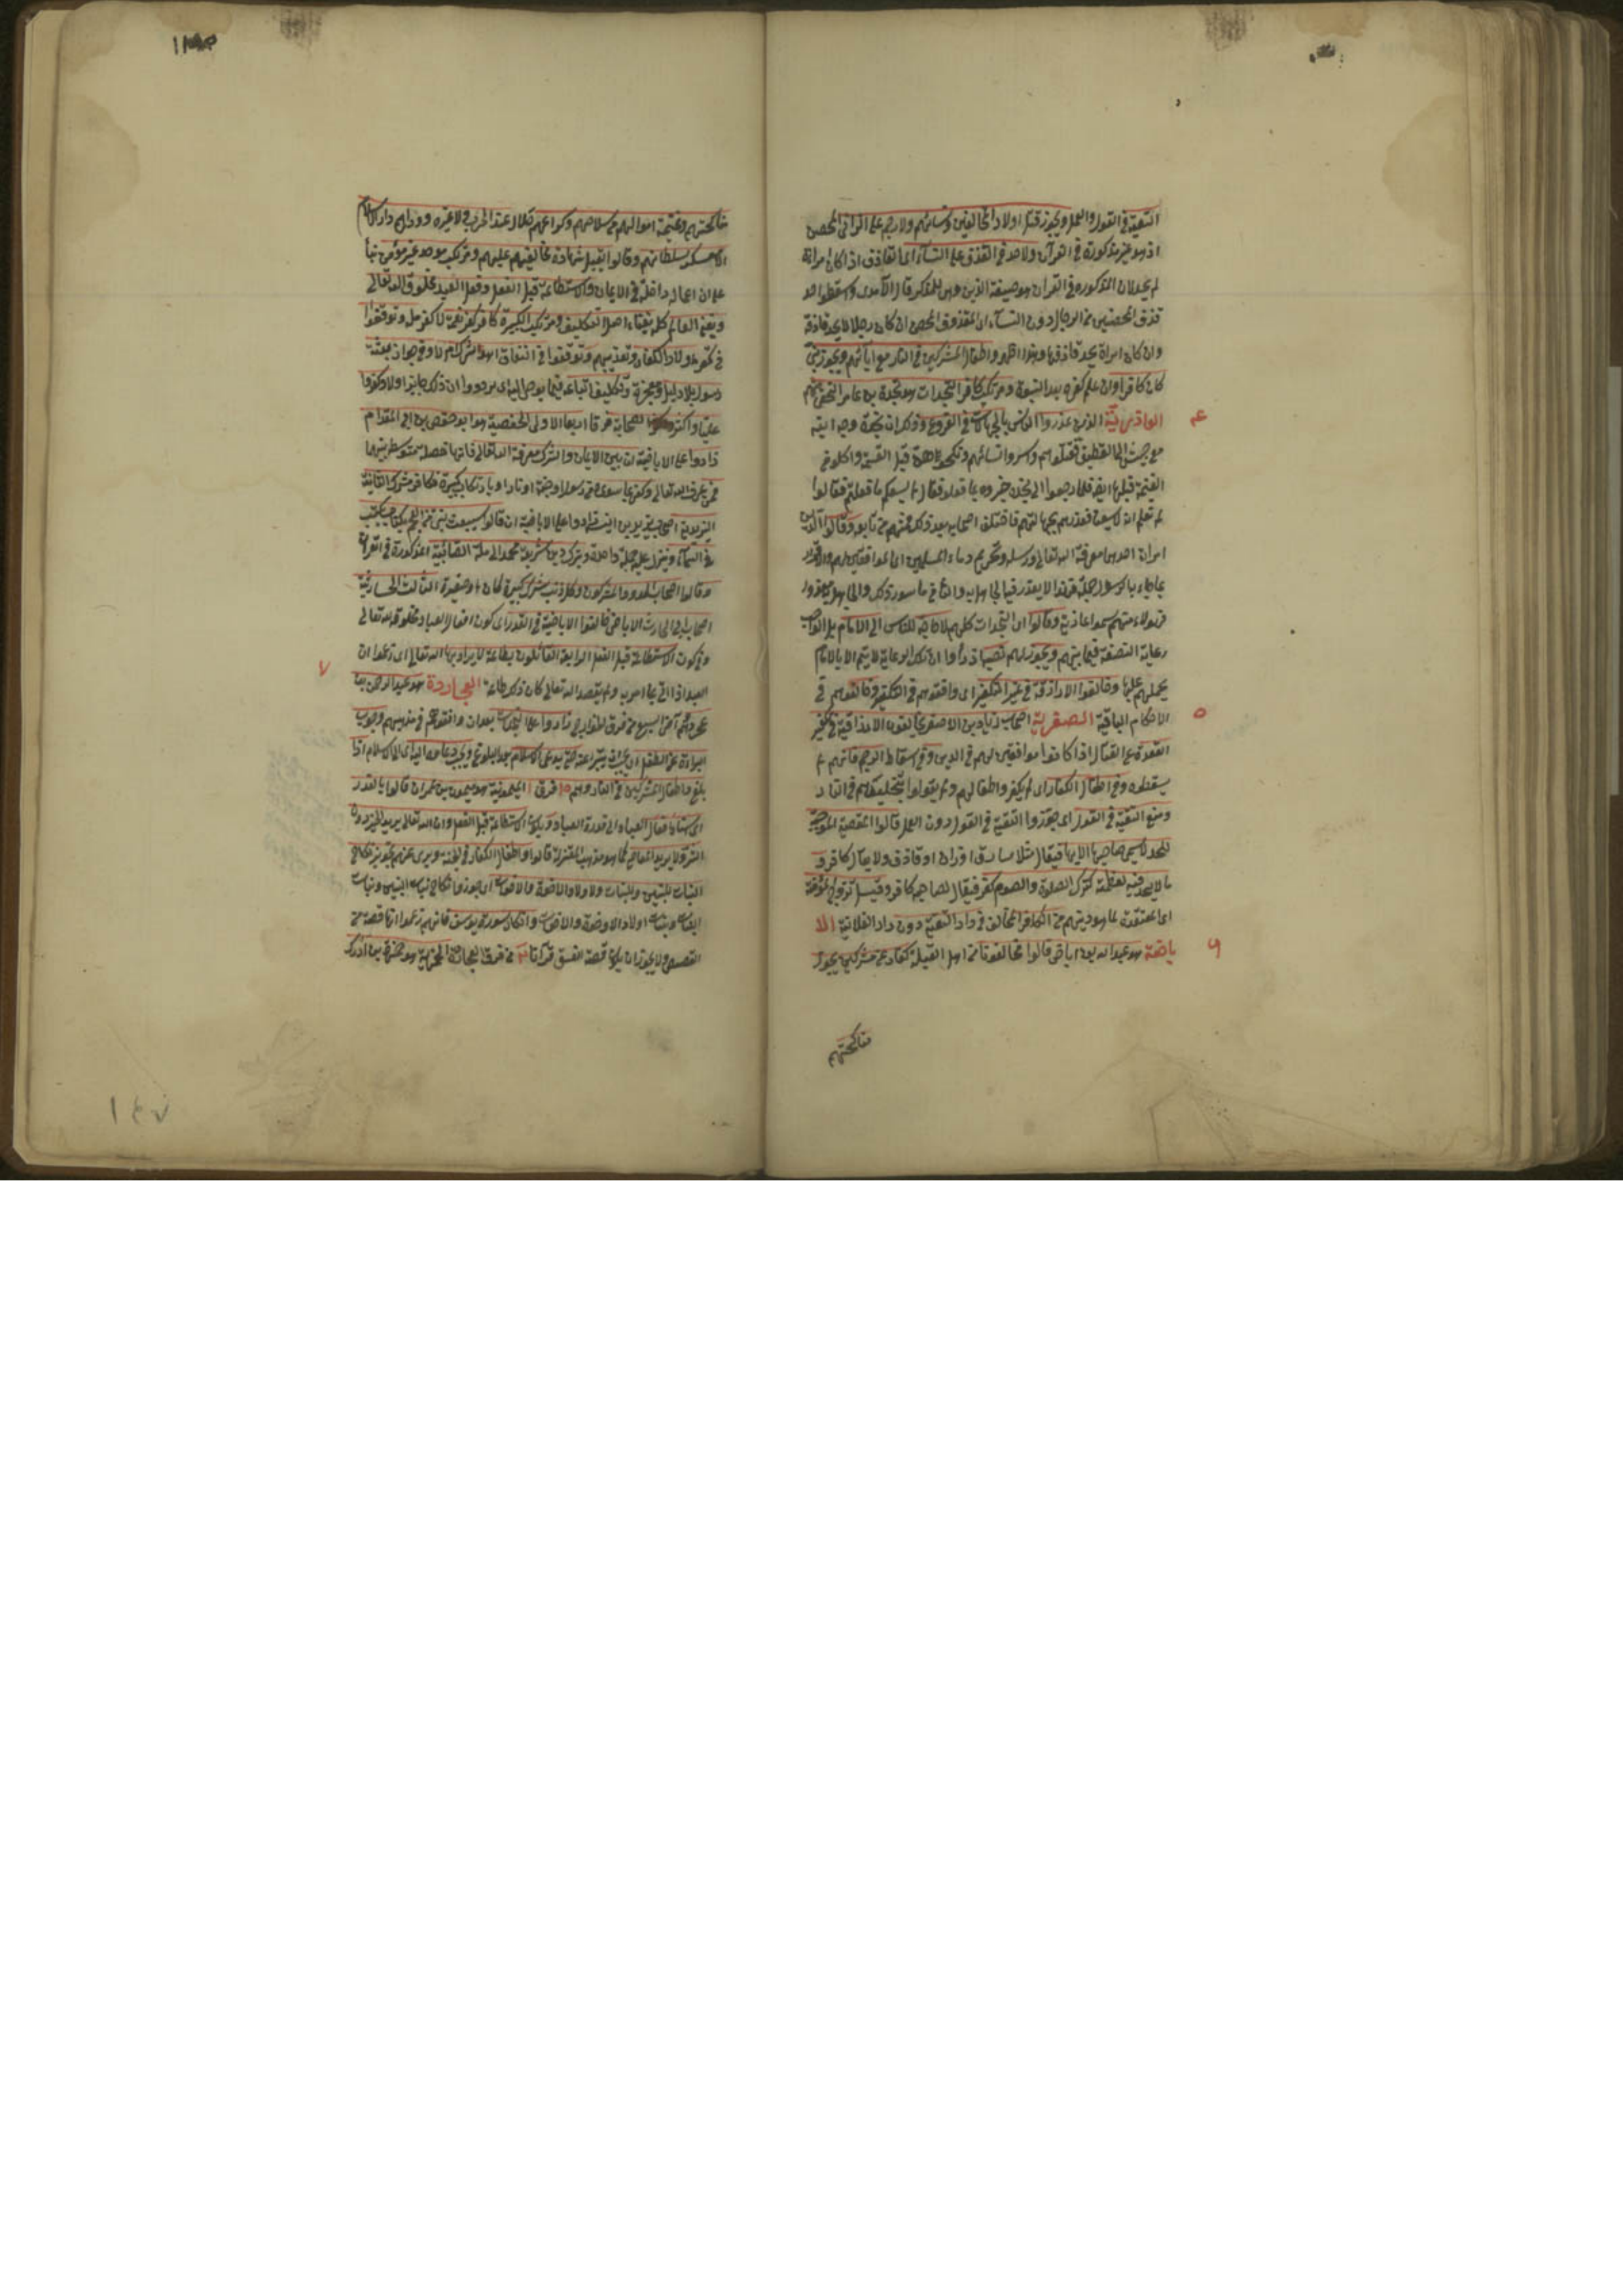 التقية في القول والعمل ويجوز قتل اولاد المخالفين ونسائهم ولا رجم على الزاني المحصن
اذ هو غير مذكورة في القرآن ولا حد في القذف على النساء اي القاذف اذا كان امراة
لم يحد لان المذكوره في القرآن هو صيغة الذين وهى للمذكر قال الآمدى واسقطوا حد
قذف المحصنين من الرجال دون النساء اى المقذوف المحصن ان كان رجلا لا يحد قاذفه
وان كان امراة يحد قاذفها وهذا اظهر واطفال المشركين في النار مع آبائهم ويجوز نبى
كان كافرا وان علم كفره بعد النبوة ومرتكب كافر النجدات هو نجدة بن عامر النخعى منهم
العاذرية الذين عذروا الناس بالجهالات في الفروع وذلك ان نجدة وجه ابنه
مع جيش الى القطيف فقتلوهم واسروا نسائهم ونكحوهن قبل القسمة واكلوا من
الغنيمة قبلها ايضا فلما رجعوا الى نجدة خبروه بما فعلوه فقال لم يسعكم ما فعلتم فقالوا
لم نعلم انه لا يسعنا فعذرهم بجهالتهم فاختلف اصحابه بعد ذلك فمنهم من تابعه وقالوا الدين
امران احدهما معرفة الله تعالى ورسله وتحريم دماء المسلمين اى الموافقين لهم والاقرار
بما جاء به الرسول جملة فهذا لا يعذر فيه الجاهل به والثاني ما سوى ذلك والجاهل به معذور
فهولاء منهم سموا عاذرية وقالوا اى النجدات كلهم لا حاجة للناس الى الامام بل الواجب
رعاية النصفة فيما بينهم ويجوز لهم نصبه اذا رأوا ان تلك الرعاية لا يتم الا بالامام
يحملهم عليها وخالفوا الازارقة في غير التكفير اى وافقوهم في التكفير وخالفوهم في
الاحكام الباقية الصفرية اصحاب زياد بن الاصفر يخالفون الازارقة في تكفير
القعدة عن القتال اذا كانوا موافقين لهم في الدين وفي اسقاط الرجم فانهم لم
يسقطوه وفي اطفال الكفار اى لم يكفروا اطفالهم ولم يقولوا بتخليدهم في النار
ومنع التقية في القول اى جوزوا التقية في القول دون العمل قالوا المعصية الموجبة
للحد لا يسمى صاحبها الا بها فيقال مثلا سارق او زان او قاذف ولا يقال كافر و
ما لا حد فيه لعظمته كترك الصلوة والصوم كفر فيقال لصاحبه كافر وقيل تزوج المؤمنة
اى المعتقدة لما هو دينهم من الكافر المخالف في دار التقية دون دار العلانية الا
باضية هو عبد الله بن اباض قالوا مخالفونا من اهل القبلة كفار غير مشركين يجوز
مناكحتهم
٤
٥
٦
مناكحتهم وغنيمة اموالهم من سلاحهم وكراعهم حلال عند الحرب دون غيره ودارهم دار الاسلام
الا معسكر سلطانهم وقالوا يقبل شهادة مخالفيهم عليهم ومرتكب موحد غير مؤمن بناء
على ان الاعمال داخلة في الايمان والاستطاعة قبل الفعل وفعل العبد مخلوق الله تعالى
ويفنى العالم كله بفناء اهل التكليف ومرتكب الكبيرة كافر كفر نعمة لا كفر ملة وتوقفوا
في تكفير اولاد الكفار وتعذيبهم وتوقفوا في النفاق اهو شرك ام لا وفي جواز بعثة
رسول بلا دليل ومعجزة وتكليف اتباعه فيما يوحى اليه اى ترددوا ان ذلك جايز او لا وكفروا
عليا واكثر الصحابة فرقا اربعا الاولى الحفصية هو ابو حفص بن ابى المقدام
زادوا على الاباضية ان بين الايمان والشرك معرفة الله تعالى فانها خصلة متوسطة بينهما
فمن عرف الله تعالى وكفر بما سواه من رسول او جنة او نار او بارتكاب كبيرة فكافر لا مشرك الثانية
اليزيدية اصحاب يزيد بن انيسة زادوا على الاباضية ان قالوا سيبعث نبى من العجم بكتاب يكتب
في السماء وينزل عليه جملة واحدة ويترك دين شريعة محمد الى ملة الصابئية المذكورة في القرآن
وقالوا اصحاب الحدود مشركون وكل ذنب شرك كبيرة كان او صغيرة الثالث الحارثية
اصحاب ابى الحارث الاباضى خالفوا الاباضية في القدر اى كون افعال العباد مخلوقة لله تعالى
وفي كون الاستطاعة قبل الفعل الرابعة القائلون بطاعة لا يراد بها الله تعالى اى زعموا ان
العبد اذا اتى بما امر به ولم يقصد الله تعالى كان ذلك طاعة العجاردة هو عبد الرحمن بن
عجرد وهم آخر السبع من فرق الخوارج زادوا على النجدات بعد ان وافقوهم في مذهبهم وجوب
البراءة عن الطفل اى يجب ان يتبرأ عنه حتى يدعى الاسلام بعد البلوغ ويجب دعاءه الى الاسلام اذا
بلغ واطفال المشركين في النار وهم ١٠ فرق ١ الميمونية هو ميمون بن عمران قالوا بالقدر
اى اسناد افعال العباد الى قدرة العباد ويكون الاستطاعة قبل الفعل وان الله تعالى يريد الخير دون
الشر ولا يريد المعاصى كما هو مذهب المعتزلة قالوا واطفال الكفار في الجنة ويروى عنهم تجويز نكاح
البنات للبنين وللبنات ولاولاد الاخوة والاخوات اى جوزوا نكاح بنات البنين وبنات
البنات وبنات اولاد الاخوة والاخوات وانكار سورة يوسف فانهم زعموا انها قصة من
القصص ولا يجوز ان يكون قصة العشق قرآنا ٢ من فرق العجاردة الحمزية هو حمزة بن ادرك
٧
١٤٧